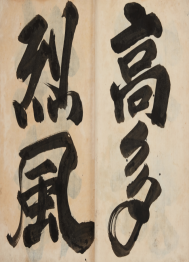 高多
烈風